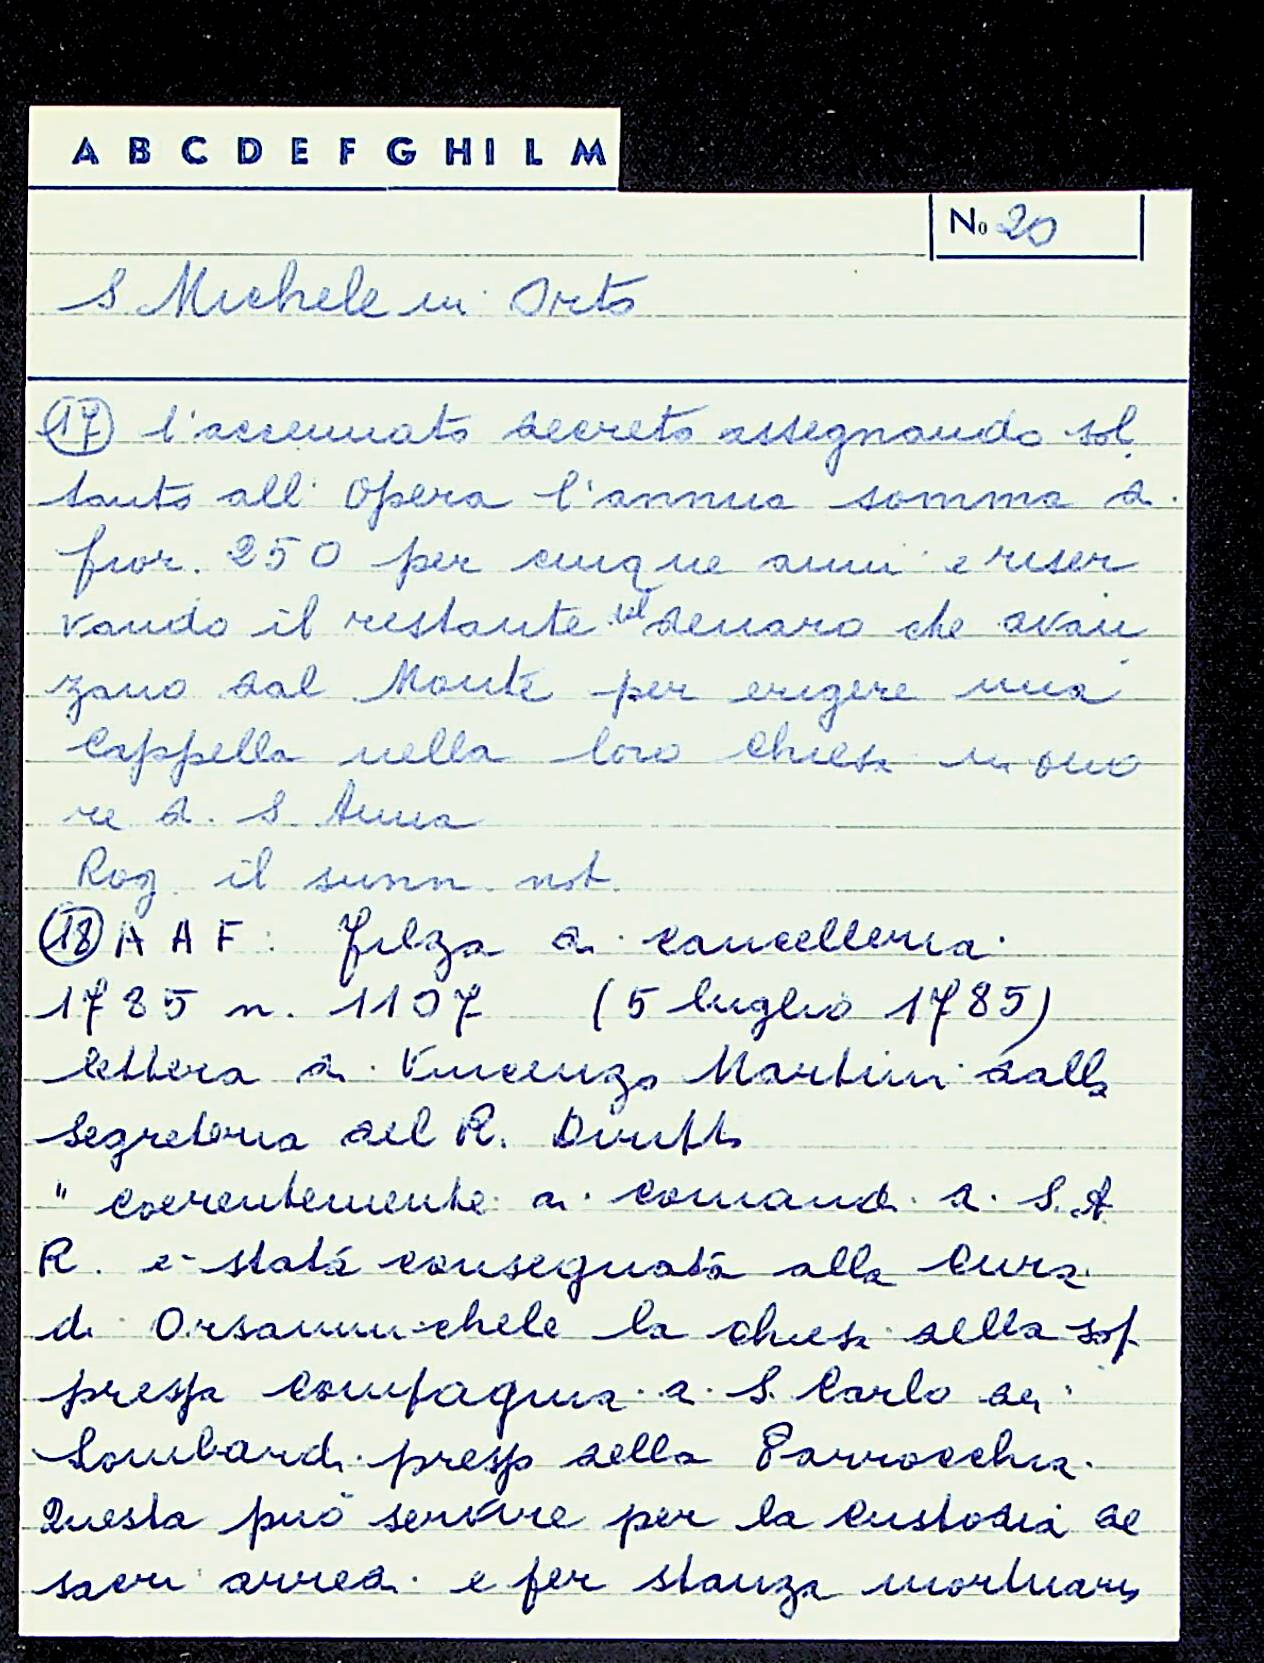 A B C D E F G H I L M
No 20
S Michele in Orto
17 l'accennato decreto assegnando sol
tanto all' Opera l'annua somma di
fior. 250 per cinque anni e riser
vando il restante del denaro che avan
zano dal Monte per erigere una
Cappella nella loro Chiesa in ono
re di S. Anna
Rog. il sunn. not.
18 A A F: filza di cancelleria
1785 n. 1107 (5 luglio 1785)
lettera di Vincenzo Martini dalla
Segreteria del R. Diritto
" Coerentemente ai comandi di S. A
R. è stata consegnata alla Cura
di Orsanmichele la chiesa della sop
pressa Compagnia di S. Carlo dei
Lombardi presso della Parrocchia.
Questa può servire per la custodia de
sacri arredi e per stanza mortuaria